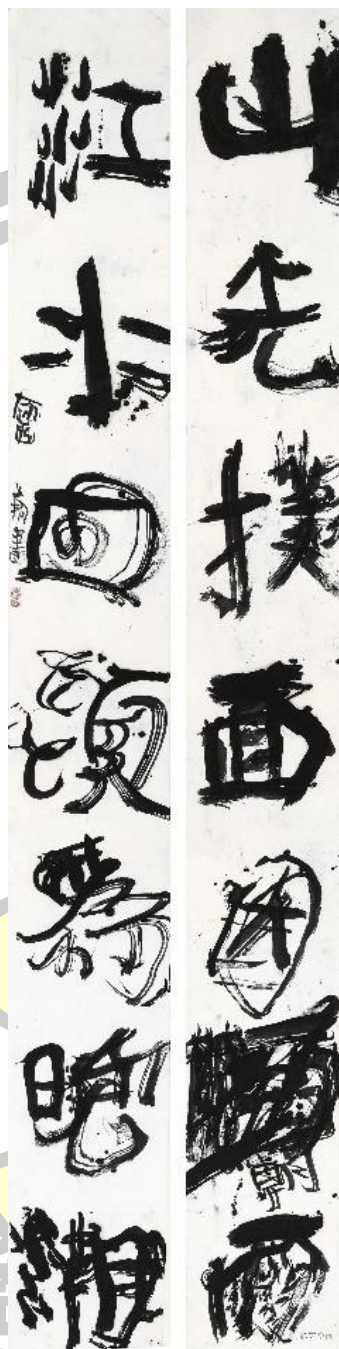 山光撲面因朝雨
江水回頭為晚潮